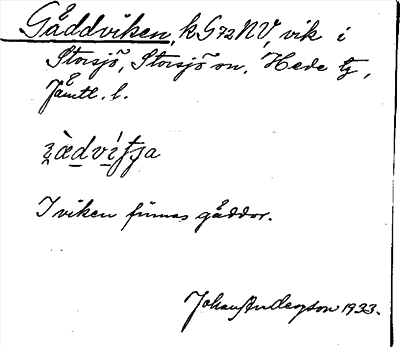 Gåddviken, k G72NV, vik i
Storsjö, Storsjö sn, Hede tg,
Jämtl. l.
I viken finnas gäddor.
Johan Anderson 1933.